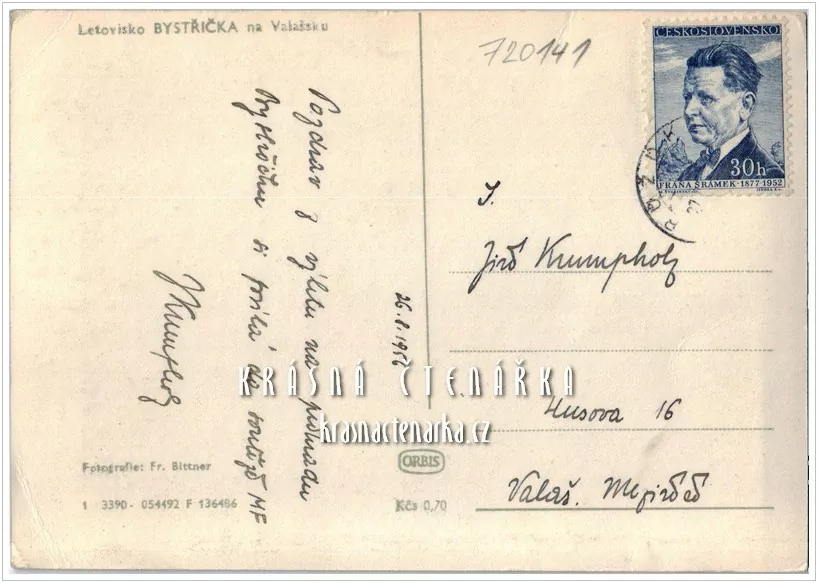 Letovisko BYSTŘIČKA na Valašsku
720141
ČESKOSLOVENSKO
30h
FRÁŇA ŠRÁMEK · 1877-1952
Pozdrav z výletu na přehradu
Bystřičku si posílá do soutěže MF
JKrumpholz
26.8.1956
J.
Jiří Krumpholz
Husova 16
Valaš. Meziříčí
KRÁSNÁ ČTENÁŘKA
krasnactenarka.cz
Fotografie: Fr. Bittner
1 3390- 054492 F 136486
ORBIS
Kčs 0,70